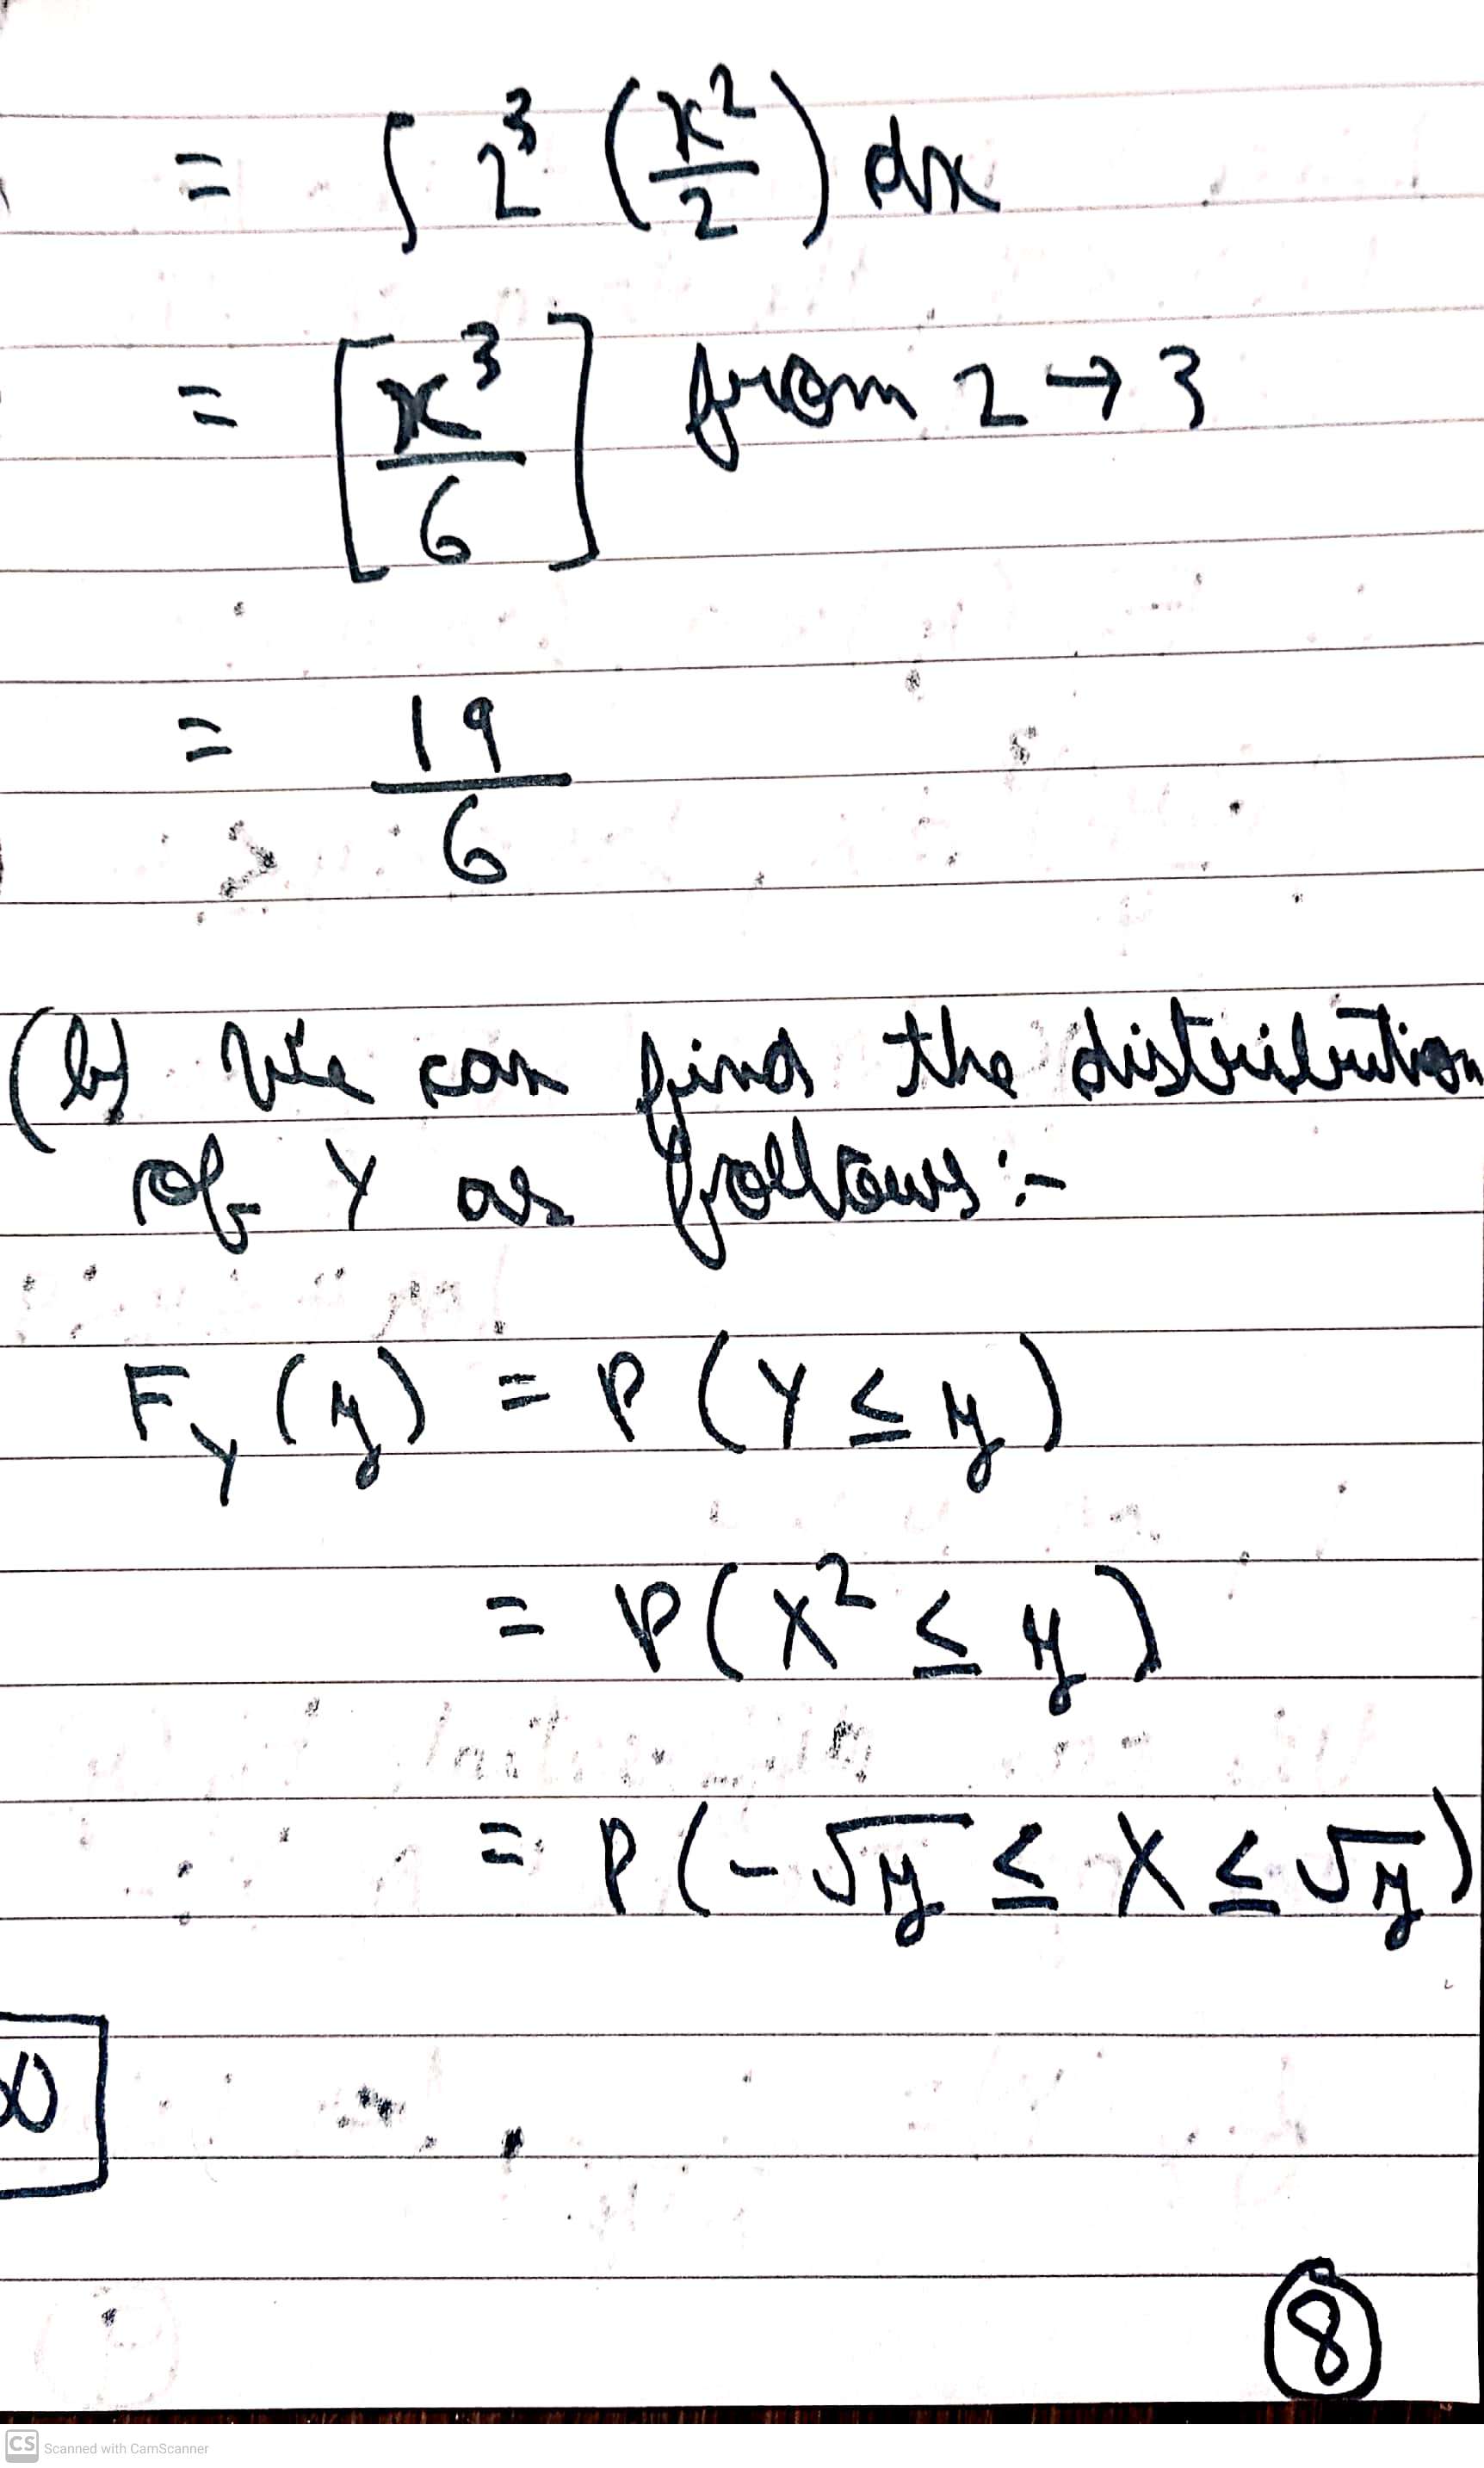 = ∫ 2³ (x²/2) dx
= [x³/6] from 2 → 3
= 19/6
(b) We can find the distribution
of Y as follows :-
F_Y (y) = P (Y ≤ y)
= P(X² ≤ y)
= P(-√y ≤ X ≤ √y)
8
CS Scanned with CamScanner